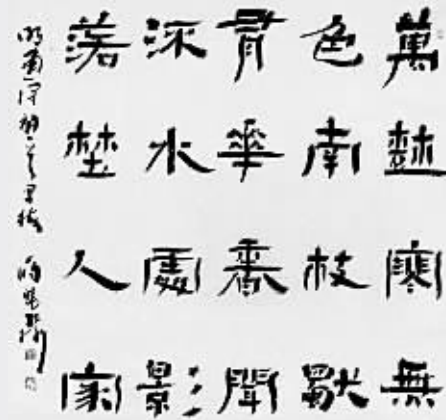 萬樹寒無
色南枝獨
有華香聞
流水處影
落埜人家
早梅